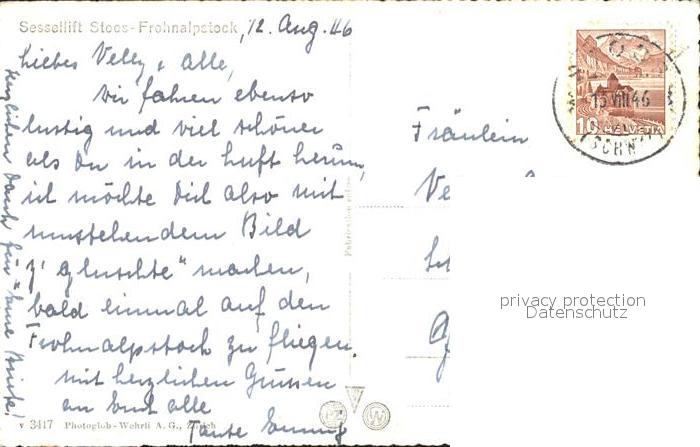 Sessellift Stoos-Frohnalpstock, 12. Aug. 46
Liebes Velly & Alle,
Wir fahren ebenso
lustig und viel schöner
als Du in der Luft herum,
ich möchte Dich also mit
umstehendem Bild
"z'gluschte" machen,
bald einmal auf den
Frohnalpstock zu fliegen.
Mit herzlichen Grüssen
an Euch alle
Tante Emmy
Herzlichen Dank für Deine Briefe!
v 3417 Photoglob-Wehrli A. G., Zürich
Fräulein
Ve
13 VIII 46
10 HELVETIA
privacy protection
Datenschutz